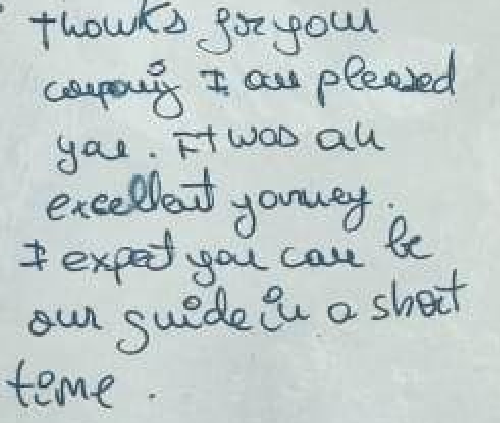 Thanks for your
company I am pleased
you. It was an
excellent yourney.
I expect you can be
our guide in a short
time.